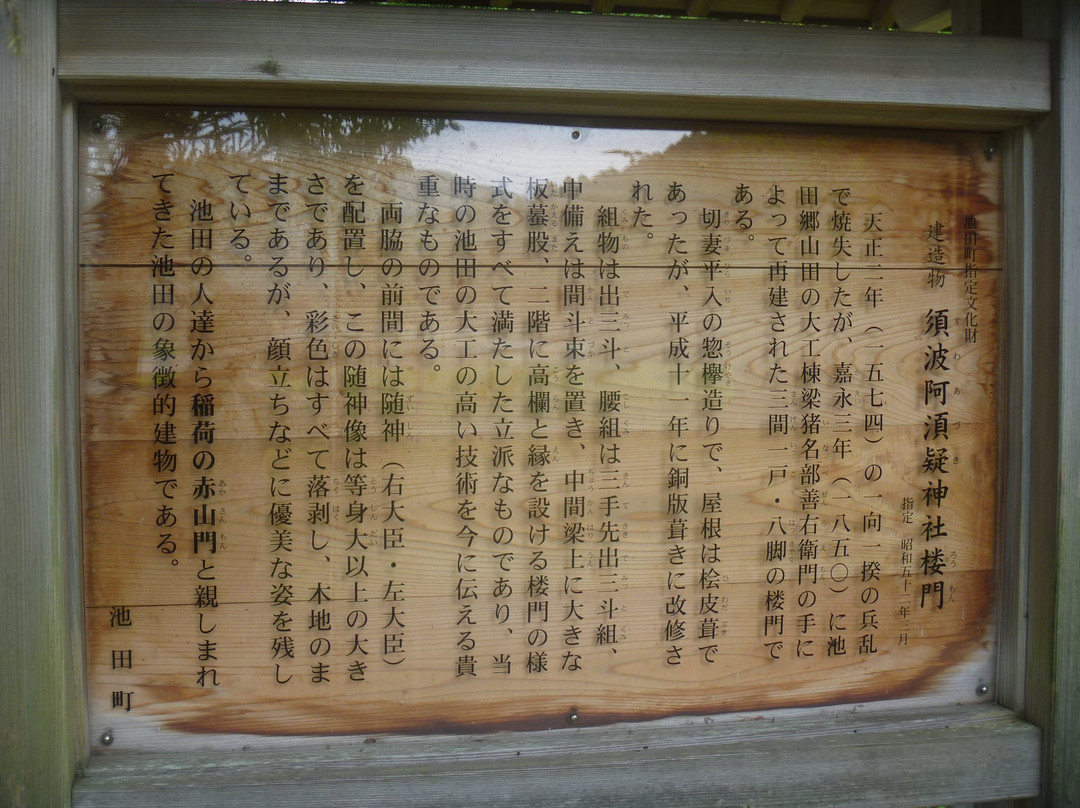 池田町指定文化財
建造物 須波阿湏疑神社楼門
指定 昭和五十二年
天正二年（一五七四）の一向一揆の兵乱
で焼失したが、嘉永三年（一八五〇）に池
田郷山田の大工棟梁猪名部善右衛門の手に
よって再建された三間一戸・八脚の楼門で
ある。
切妻平入の惣欅造りで、屋根は桧皮葺で
あったが、平成十一年に銅版葺きに改修さ
れた。
組物は出三斗、腰組は三手先出三斗組、
中備えは間斗束を置き、中間梁上に大きな
板蟇股、二階に高欄と縁を設ける楼門の様
式をすべて満たした立派なものであり、当
時の池田の大工の高い技術を今に伝える貴
重なものである。
両脇の前間には随神（右大臣・左大臣）
を配置し、この随神像は等身大以上の大き
さであり、彩色はすべて落剥し、木地のま
まであるが、顔立ちなどに優美な姿を残し
ている。
池田の人達から稲荷の赤山門と親しまれ
てきた池田の象徴的建物である。
池田町